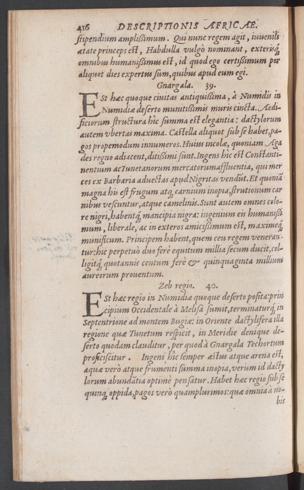 416 DESCRIPTIONIS AFRICAE.
stipendium amplissimum. Qui nunc regem agit, iuuenili
aetate princeps est, Habdulla vulgò nominant, exterisq́;
omnibus humanissimus est, id quod ego certissimum per
aliquot dies expertus sum, quibus apud eum egi.
Guargala. 39.
Est hæc quoque ciuitas antiquissima, à Numidis in
Numidiæ deserto munitissimis muris cincta. Aedi-
ficiorum structura hîc summa est elegantia: dactylorum
autem vbertas maxima. Castella aliquot sub se habet, pa-
gos propemodum innumeros. Huius incolæ, quoniam Aga
des regno adiacent, ditissimi sunt. Ingens hîc est Constanti-
nensium ac Tunetanorum mercatorum affluentia, qui mer-
ces ex Barbaria aduectas apud Nigritas vendūt. Et quoniā
magna hîs est frugum atq́; carnium inopia, strutionum car
nibus vescuntur, atque camelinis. Sunt autem omnes colo-
re nigri, habentq́; mancipia nigra: ingenium eis humanissi
mum, liberale, ac in exteros amicissimum est, maximeq́;
munificum. Principem habent, quem ceu regem veneran-
tur: hic perpetuò duo ferè equitum millia secum ducit, col-
ligitq́; quotannis centum ferè & quinquaginta millium
aureorum prouentum.
Zeb regio. 40.
Est hæc regio in Numidiæ quoque deserto posita: prin
cipium Occidentale à Mesila sumit, terminaturq́; in
Septentrione ad montem Bugiæ: in Oriente dactylifera illa
regione quæ Tunetum respicit, in Meridie denique de-
serto quodam clauditur, per quod à Guargala Techortum
proficiscitur. Ingens hîc semper æstus atque arena est,
aquæ verò atque frumenti summa inopia, verum id dacty
lorum abundātia optimè pensatur. Habet hæc regio sub se
quinq́; oppida, pagos verò quamplurimos: quæ omnia à no-
bis